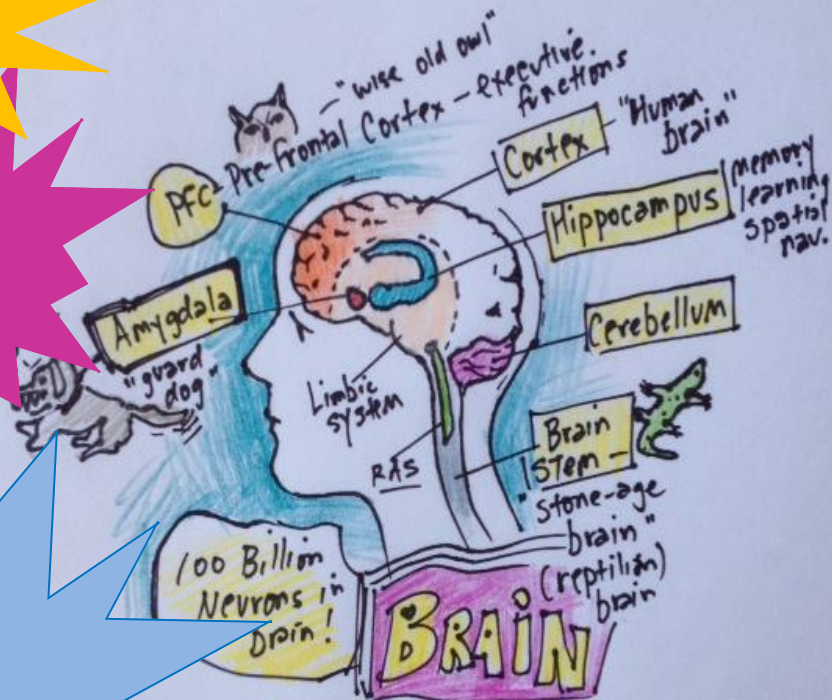 "wise old owl"
PFC - Pre-frontal Cortex - executive functions
Cortex - "Human brain"
Hippocampus
memory
learning
spatial
nav.
Amygdala
"guard
dog"
Cerebellum
Limbic
system
RAS
Brain
Stem -
"stone-age
brain"
(reptilian)
brain
100 Billion
Neurons in
Brain!
BRAIN